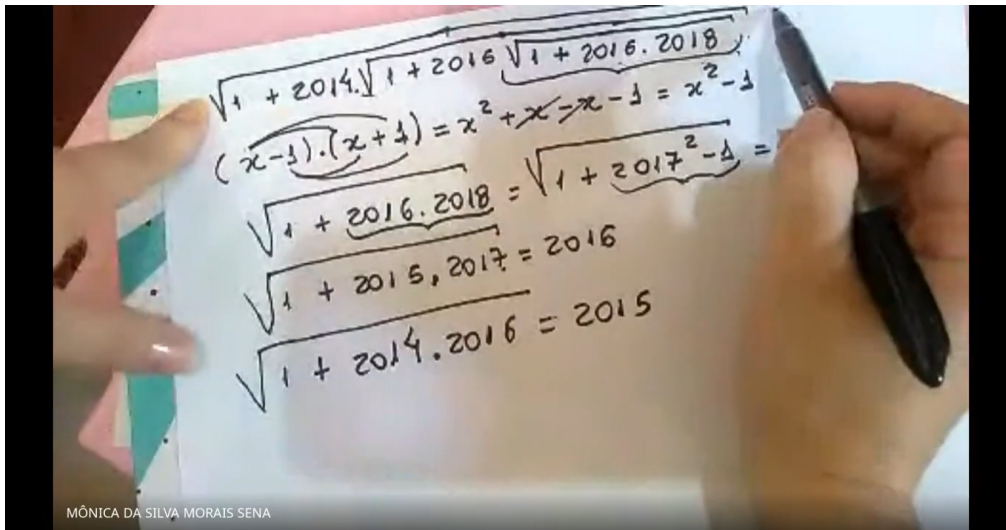 √1 + 2014.√1 + 2016 √1 + 2016.2018
(x-1).(x+1) = x² + x - x - 1 = x² - 1
√1 + 2016.2018 = √1 + 2017² - 1 =
√1 + 2015.2017 = 2016
√1 + 2014.2016 = 2015
MÔNICA DA SILVA MORAIS SENA